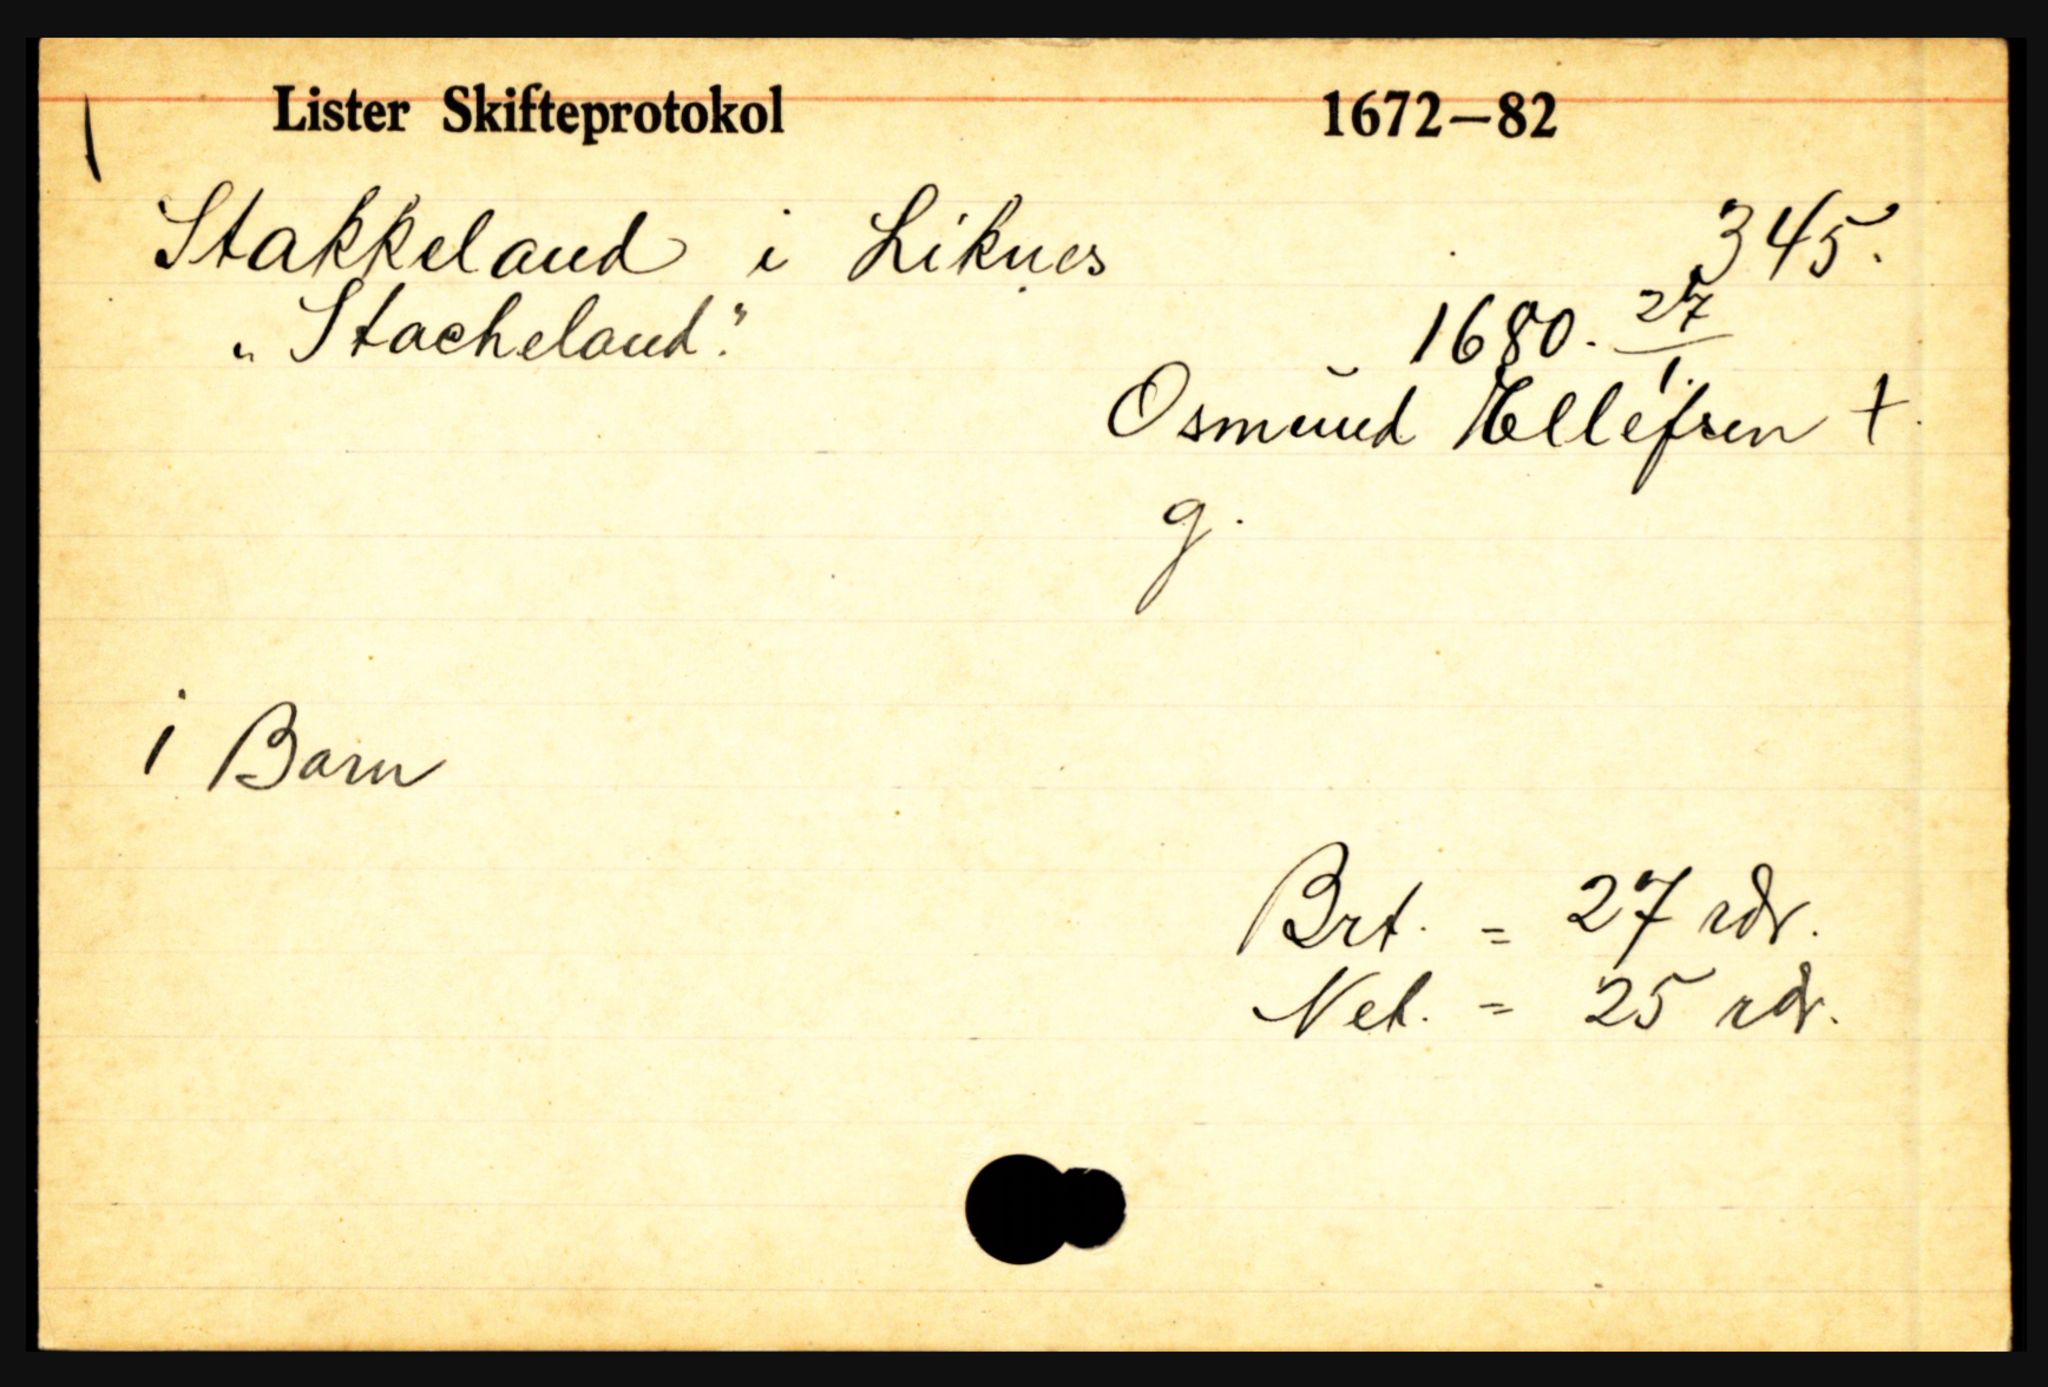 Lister Skifteprotokol 1672–82
Stakkeland i Liknes 345.
„Stacheland." 1680. 27/1.
Osmund Ellefsen †.
g.
1 Barn
Brt. = 27 rdr.
Net. = 25 rdr.